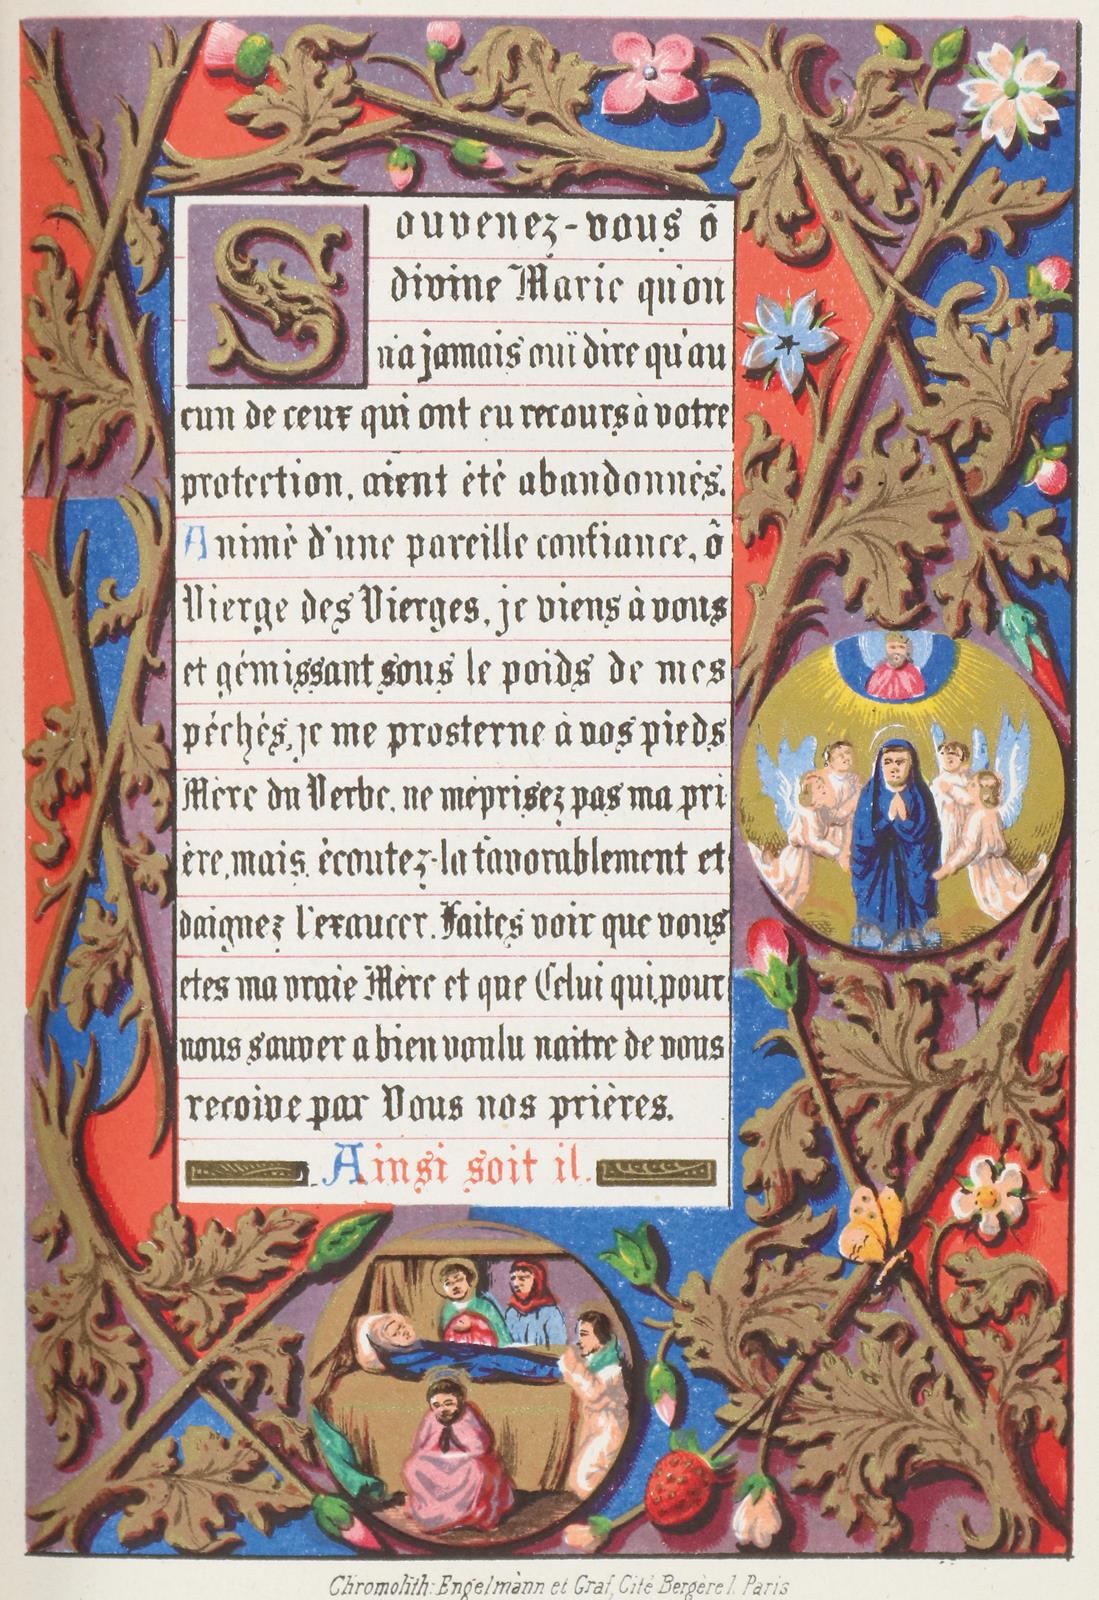 Souvenez-vous ô
divine Marie qu'on
n'a jamais ouï dire qu'au
cun de ceux qui ont eu recours à votre
protection, aient été abandonnés.
Animé d'une pareille confiance, ô
Vierge des Vierges, je viens à vous
et gémissant sous le poids de mes
péchés, je me prosterne à vos pieds
Mère du Verbe, ne méprisez pas ma pri
ère, mais, écoutez-la favorablement et
daignez l'exaucer. Faites voir que vous
etes ma vraie Mère et que Celui qui, pour
nous sauver a bien voulu naitre de vous
recoive par Vous nos prières.
Ainsi soit il.
Chromolith: Engelmann et Graf, Cité Bergère 1. Paris